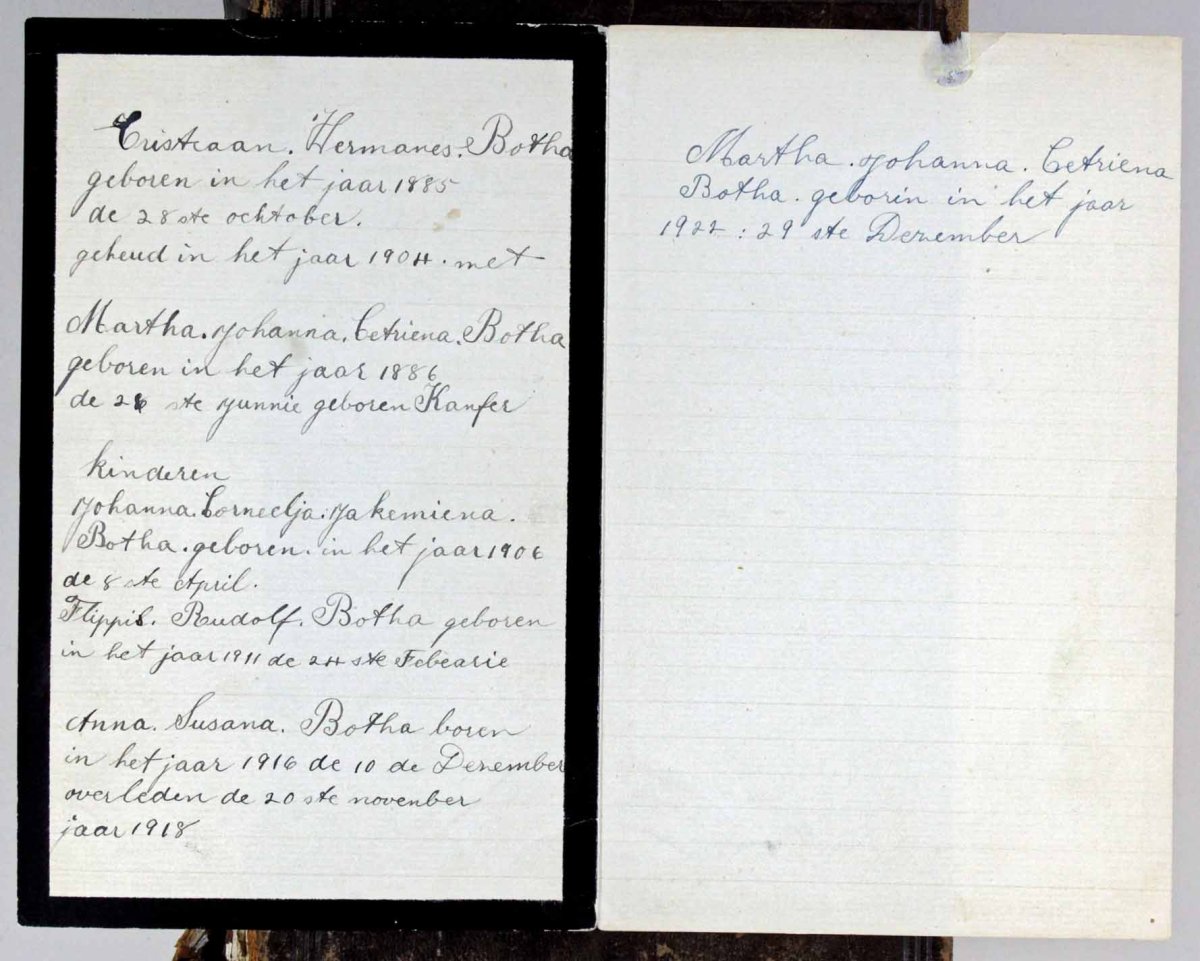 Cristiaan. Hermanes. Botha
geboren in het jaar 1885
de 28 ste ocktober.
geheud in het jaar 1904. met
Martha. Johanna. Cetriena. Botha
geboren in het jaar 1886
de 26 ste Junnie geboren Kanfer
kinderen
Johanna. Corneelja. Jakemiena.
Botha. geboren. in het jaar 1906
de 8 ste April.
Flippis. Rudolf. Botha geboren
in het jaar 1911 de 24 ste Febearie
Anna. Susana. Botha boren
in het jaar 1916 de 10 de Dezember
overleden de 20 ste november
jaar 1918
Martha. Johanna. Cetriena
Botha. geborin in het jaar
1922 : 29 ste Dezember